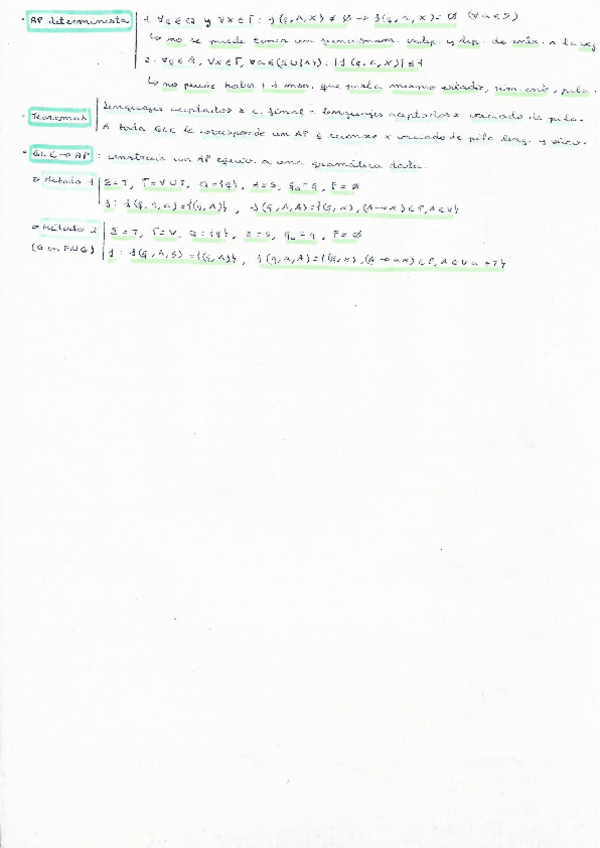 · AP determinista | 1. ∀q ∈ Q y ∀x ∈ Γ: f(q, λ, x) ≠ ∅ → f(q, a, x) = ∅ (∀a ∈ Σ)
↳ no se puede tener un funcionam. indep. y dep. de entr. a la vez
2. ∀q ∈ Q, ∀x ∈ Γ, ∀a ∈ (Σ ∪ {λ}): |f(q, a, x)| ≤ 1
↳ no puede haber 1 + mov. que parta mismo estado, sim. entr, pila.
· Teoremas | Lenguajes aceptados x e. final = lenguajes aceptados x vaciado de pila.
A toda GLC le corresponde un AP q reconoce x vaciado de pila leng. y vicev.
· GLC → AP : construir un AP equiv. a una gramática dada.
Método 1 | Σ = T, Γ = V ∪ T, Q = {q}, z = S, q₀ = q, F = ∅
f: f(q, a, a) = {(q, λ)}, f(q, λ, A) = {(q, α), (A → α) ∈ P, A ∈ V}
Método 2 | Σ = T, Γ = V, Q = {q}, z = S, q₀ = q, F = ∅
(G en FNG) | f: f(q, λ, S) = {(q, λ)}, f(q, a, A) = {(q, α), (A → aα) ∈ P, A ∈ V a ∈ T}